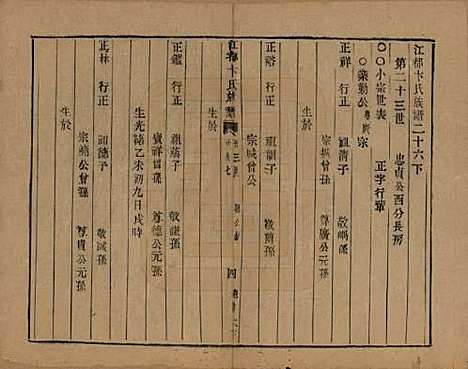 江都卞氏族譜二十六下
第二十三世 忠貞公西分長房
〇〇小宗世表 正字行輩
〇業勤公 宗
正祥 行正 祖清子 敬嶼孫
宗城曾孫 尊廣公元孫
正裕 行正 祖訓子
宗城曾公
生於
江都卞氏族譜
四
正鑑 行正 祖蔭子 敬謙孫
寶祥曾孫 尊德公元孫
生光緒乙未 初九日戌時
正林 行正 祖德子 敬誠孫
宗堯公曾孫 尊貴公元孫
生於